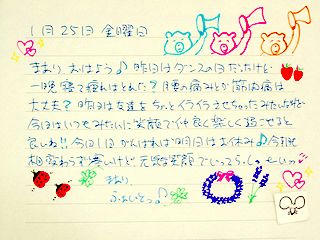 1月25日 金曜日
まおり おはよう♪ 昨日はダンスの日だったけど
一晩寝て疲れはとれた? 腰の痛みとか筋肉痛は
大丈夫? 昨日は友達をちょっとイライラさせちゃったみたいだけど
今日はいつもみたいに笑顔で仲良く楽しく過ごせると
良いね!! 今日1日がんばれば明日はお休み♪ 今朝も
相変わらず寒いけど、元気な笑顔でいってらっしゃーいっ
まおり
ふぁいとっ♪